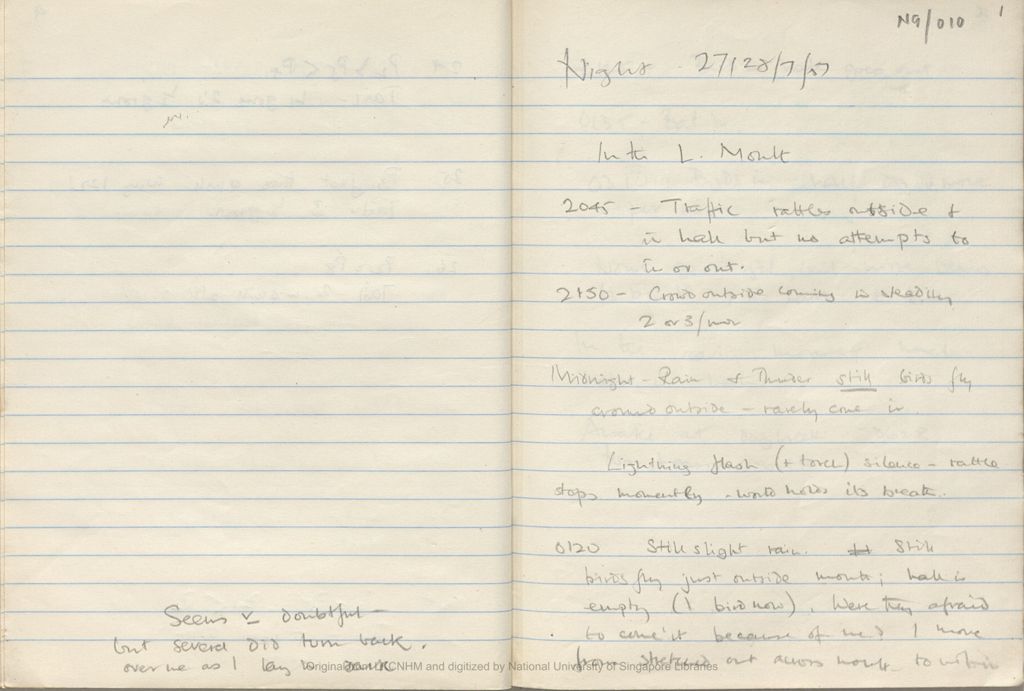 Seems v doubtful –
but several did turn back.
over me as I lay in dark
N9/010 1
Night 27/28/7/57
In the L. Mouth
2045 – Traffic rattles outside &
in hall but no attempts to
in or out.
2150 – Crowd outside coming in steadily
2 or 3/min
Midnight – Rain & Thunder still birds fly
around outside – rarely come in.
Lightning flash (+ torch) silence – rattle
stops momently – world holds its breath.
0120 Still slight rain. Still
birds fly just outside mouth; hall is
empty (1 bird now). Were they afraid
to come it because of me? I move
from stretched out across mouth to within
Original from RCNHM and digitized by National University of Singapore Libraries